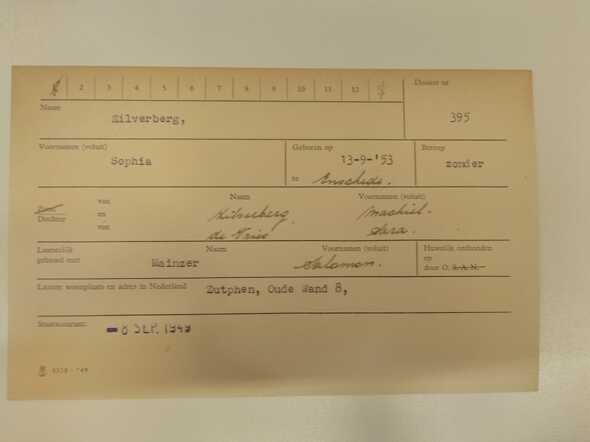 2 3 4 5 6 7 8 9 10 11 12
Dossier nr
Naam
Zilverberg,
395
Voornamen (voluit)
Sophia
Geboren op
13-9-'53
te Enschede.
Beroep
zonder
Zoon
Dochter
van
en
van
Naam
Voornamen (voluit)
Zilverberg Machiel.
de Vries Sara.
Laatstelijk
gehuwd met:
Naam
Mainzer
Voornamen (voluit)
Salomon.
Huwelijk ontbonden
op
door O. S.A.N.
Laatste woonplaats en adres in Nederland
Zutphen, Oude Wand 8,
Staatscourant:
-8 SEP. 1949
5318 - '49